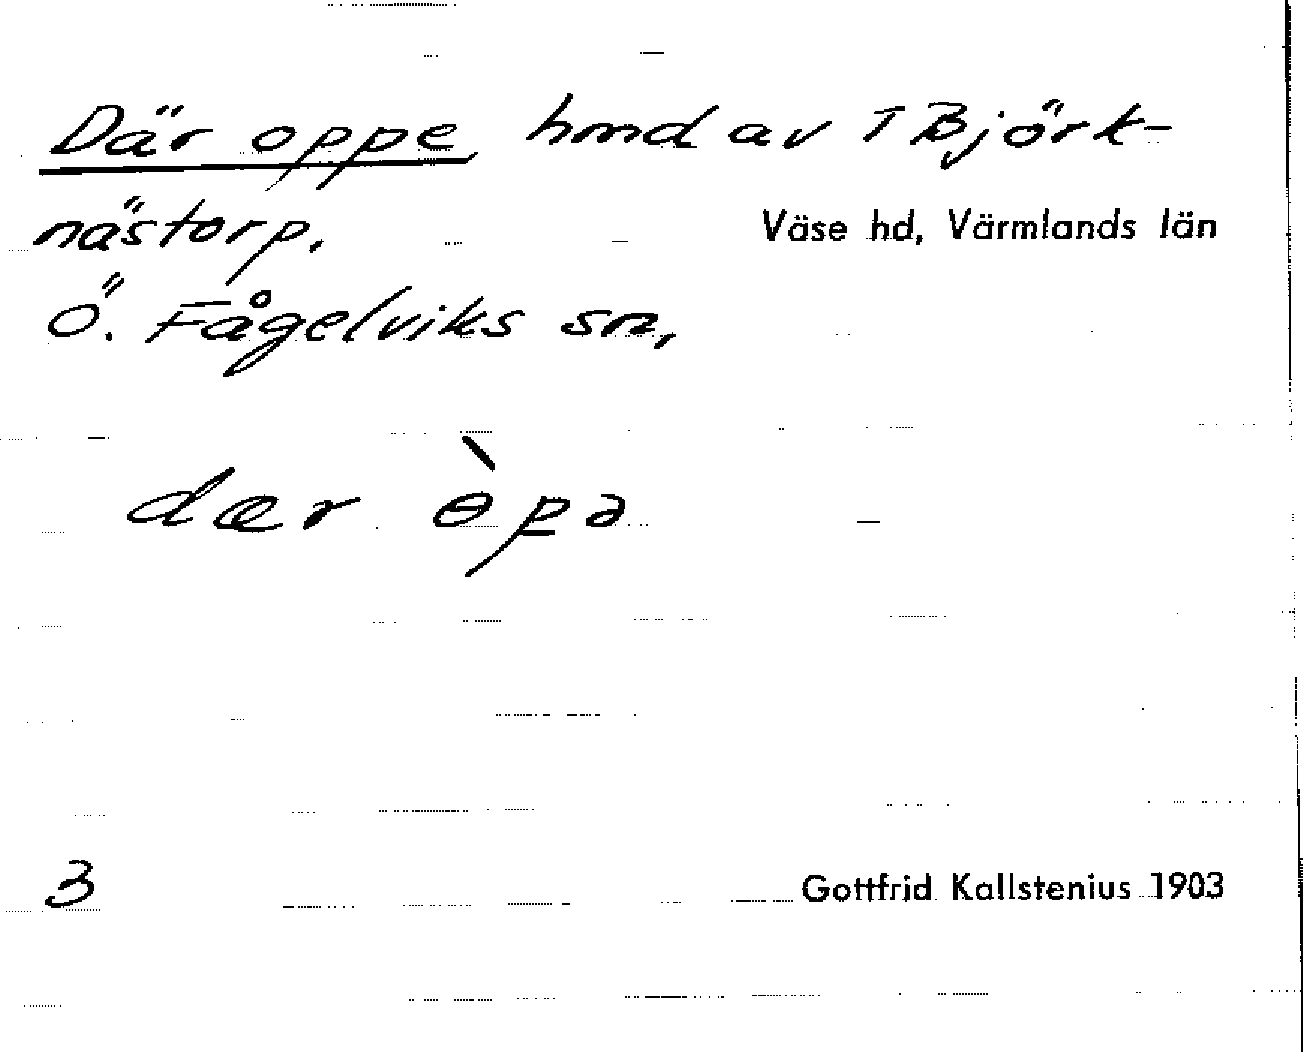 Där oppe hmd av 1 Björk-
nästorp.
Väse hd, Värmlands län
Ö. Fågelviks sn,
dær ɵ̀pə
3
Gottfrid Kallstenius 1903